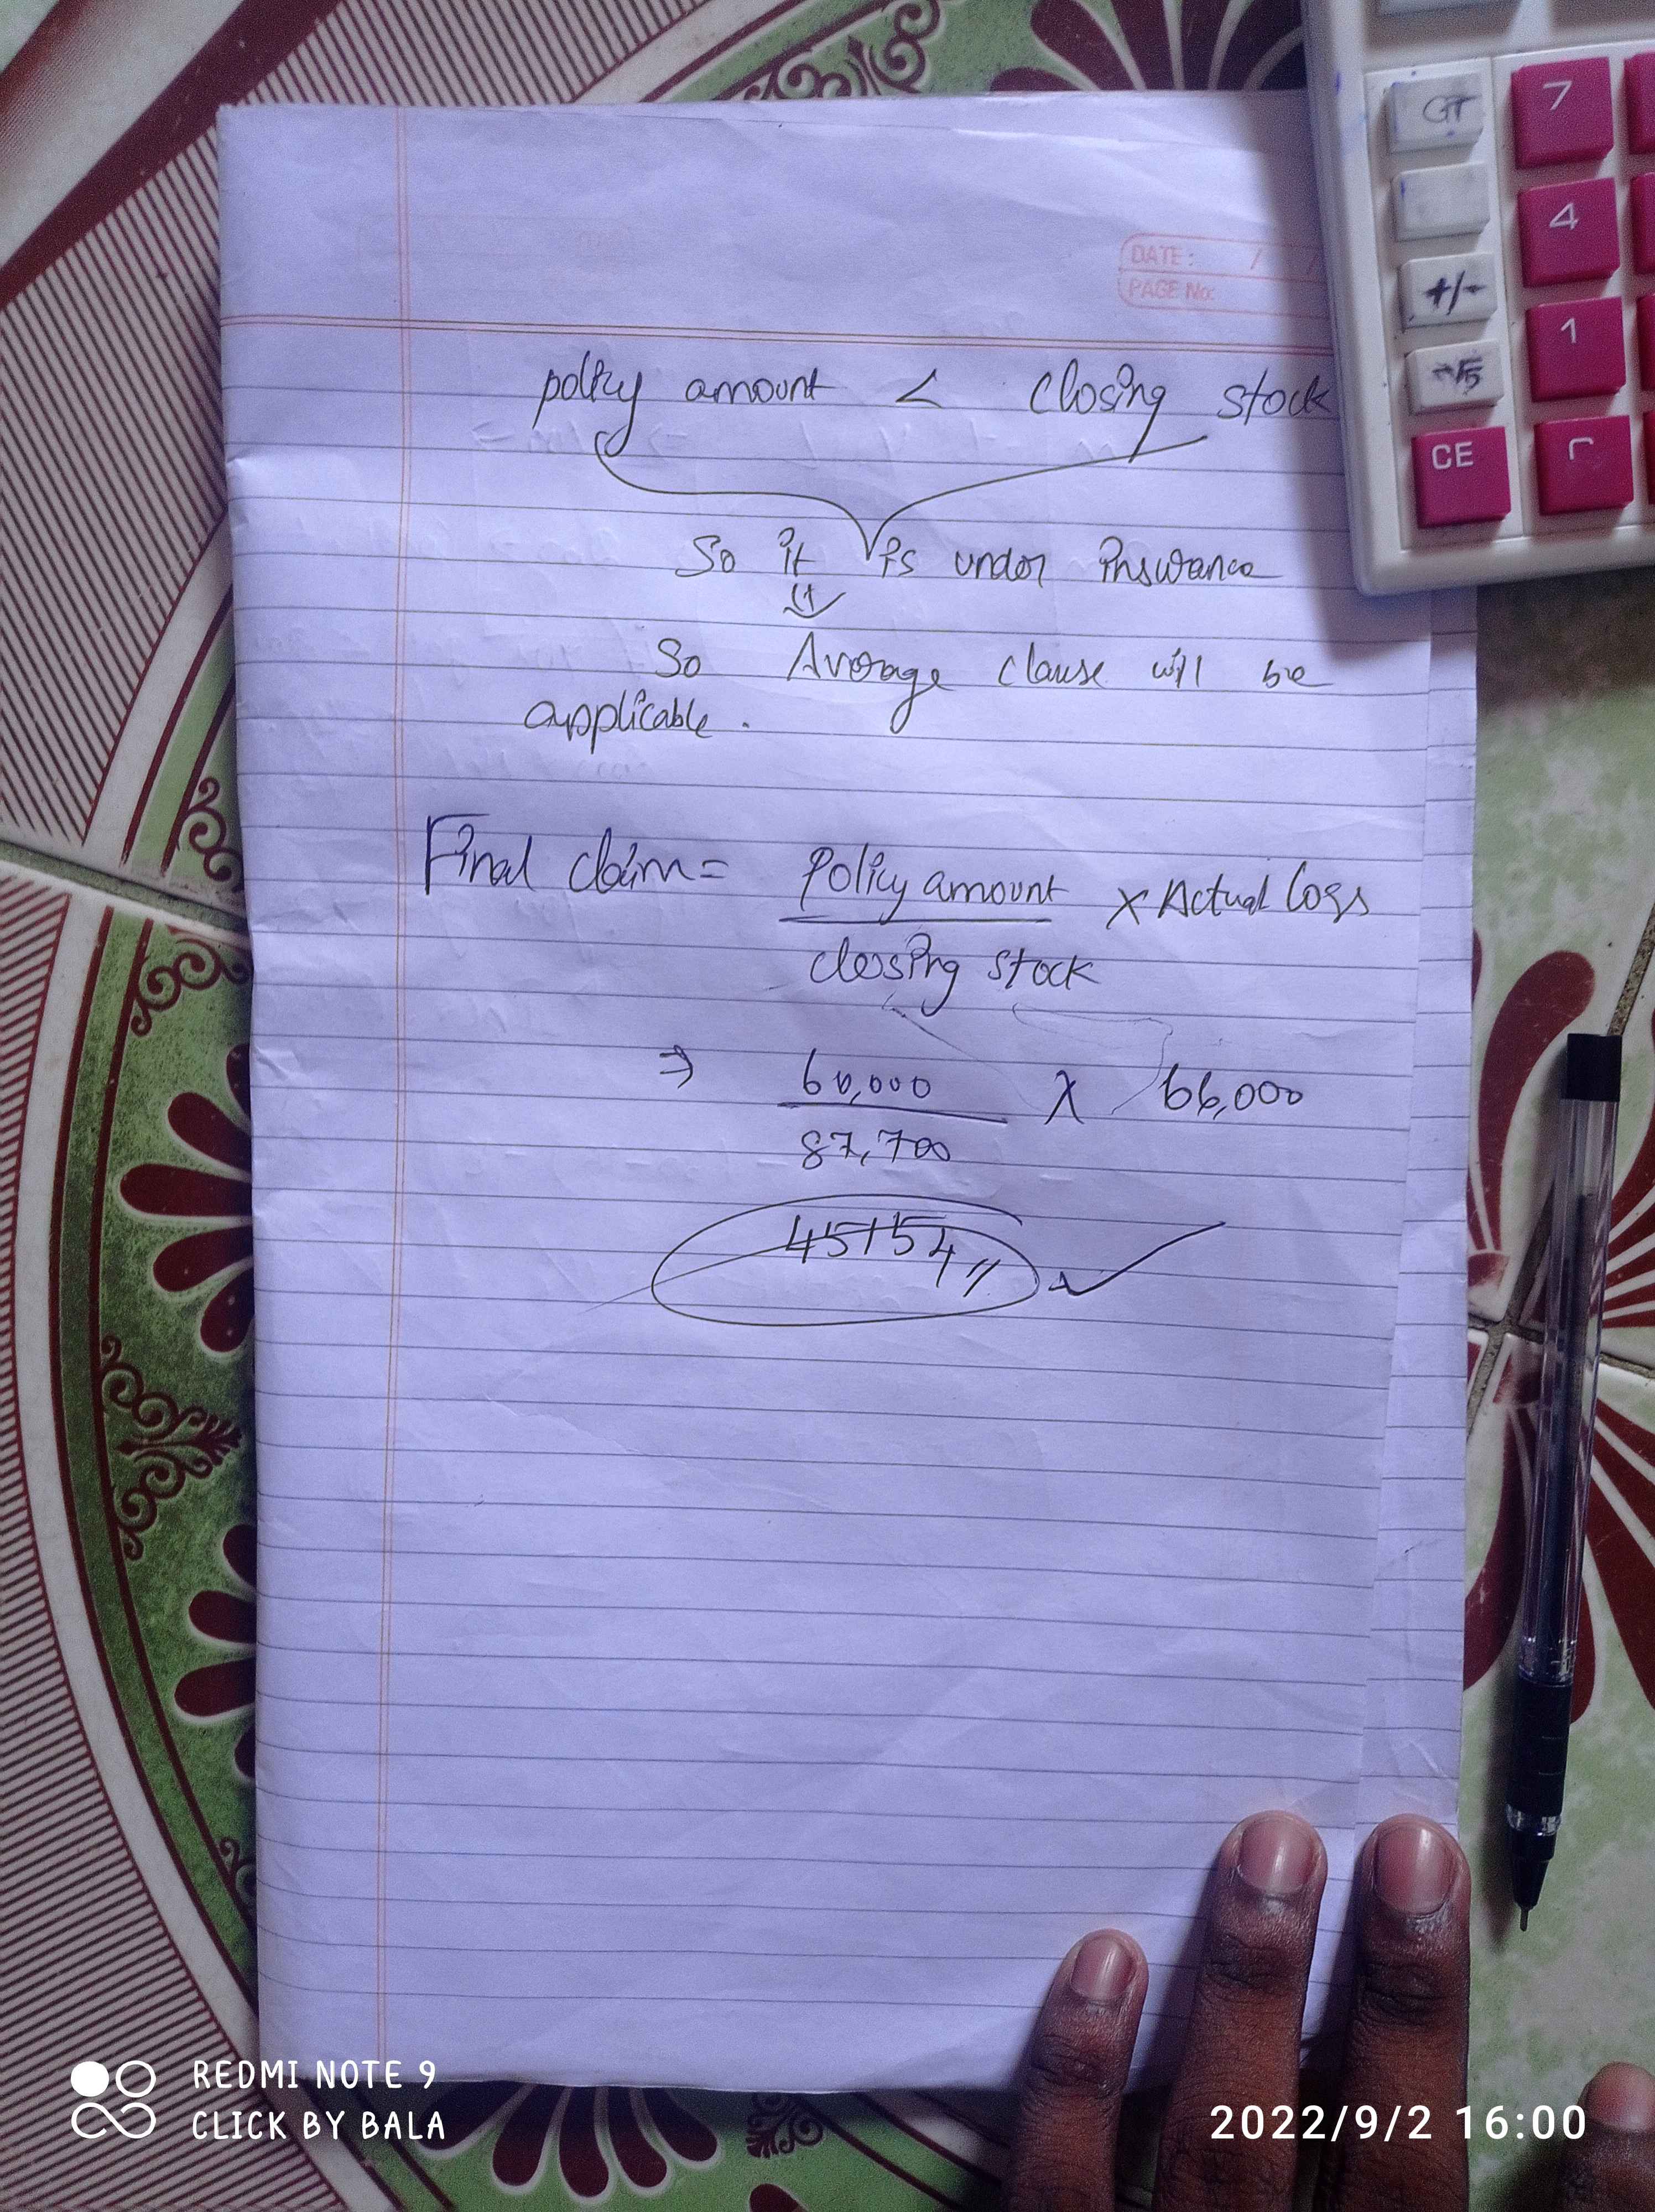 GT
7
4
+/-
1
CE
DATE: / /
PAGE No:
policy amount < closing stock
So it is under insurance
So Average clause will be
applicable.
Final claim = Policy amount × Actual loss
closing stock
⇒ 60,000 × 66,000
87,700
45154 //
REDMI NOTE 9
CLICK BY BALA
2022/9/2 16:00